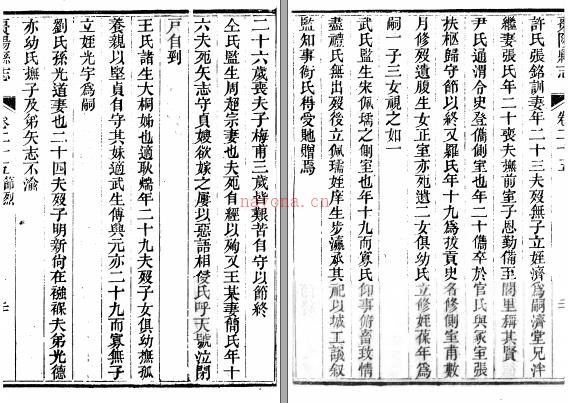 陽縣志
卷二十五
許氏張銘訓妻年二十三夫歿無子立姪濟為嗣濟堂兄泮
繼妻張氏年二十喪夫撫前室子恩勤備至閭里稱其賢
尹氏通渭令史登儁側室也年二十儁卒於官氏與冢室張
扶柩歸守節以終又羅氏年十九為拔貢史名修側室甫數
月修歿遺腹生女正室亦死遺二女俱幼氏立修姪葆年為
嗣一子三女視之如一
武氏監生宋佩之側室也年十九而寡氏仰事俯畜致情
盡禮氏無出歿後立佩姪庠生步瀛承其祀以城工議叙
監知事銜氏得受貤贈焉
二十六歲喪夫子梅甫三歲艱苦自守以節終
仝氏監生周超宗妻也夫死自經以殉又王某妻簡氏年十
六夫死矢志守貞嫂欲嫁之屢以惡語相侵氏呼天號泣閉
戸自剄
王氏諸生大桐姊也適耿年二十九夫歿子女俱幼撫孤
養親以堅貞自守其妹適武生傅與元亦二十九而寡無子
立姪光宇為嗣
劉氏孫光道妻也二十四夫歿子明新尚在襁褓夫弟光德
亦幼氏撫子及弟矢志不渝
陽縣志
卷二十五節烈
nayona.cn